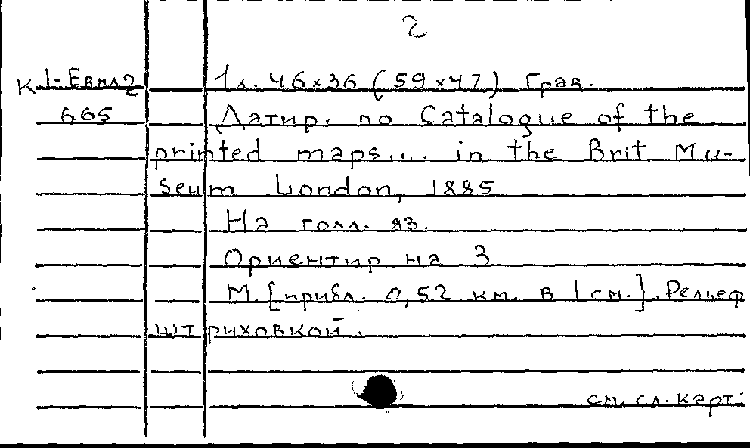 2
К 1-Евма2 1л. 46×36 (59×47) Грав.
665 Датир. по Catalogue of the
printed maps... in the Brit Mu-
seum London, 1885
На голл. яз.
Ориентир на З
М. [прибл. 0,52 км. в 1 см.]. Рельеф
штриховкой.
см. сл. карт.